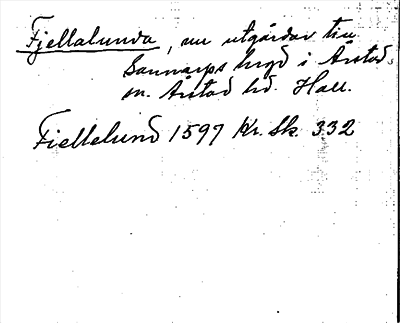 Fjellalunda, nu utgårdar till
Sannarps hvgd i Årstad s.
n. Årstad hd. Hall.
Fiellelund 1597 Kr. Sk. 332